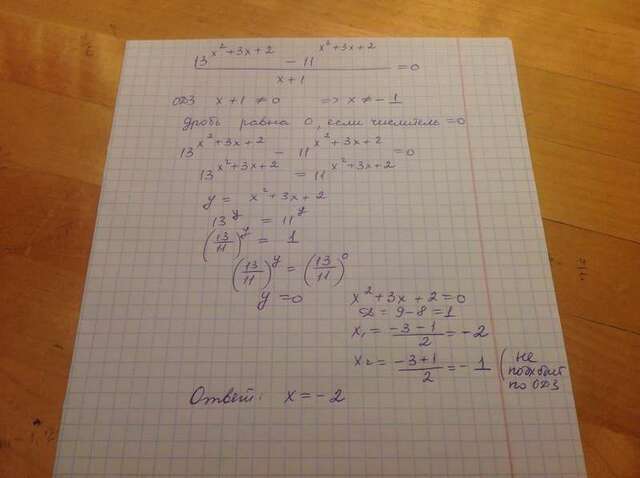 13^(x²+3x+2) − 11^(x²+3x+2) / x+1 = 0
ОДЗ x+1 ≠ 0 => x ≠ −1
дробь равна 0, если числитель =0
13^(x²+3x+2) − 11^(x²+3x+2) = 0
13^(x²+3x+2) = 11^(x²+3x+2)
y = x²+3x+2
13^y = 11^y
(13/11)^y = 1
(13/11)^y = (13/11)^0
y = 0
x²+3x+2=0
D = 9−8=1
x₁ = −3−1/2 = −2
x₂ = −3+1/2 = −1 (не
подходит
по ОДЗ
Ответ: x = −2